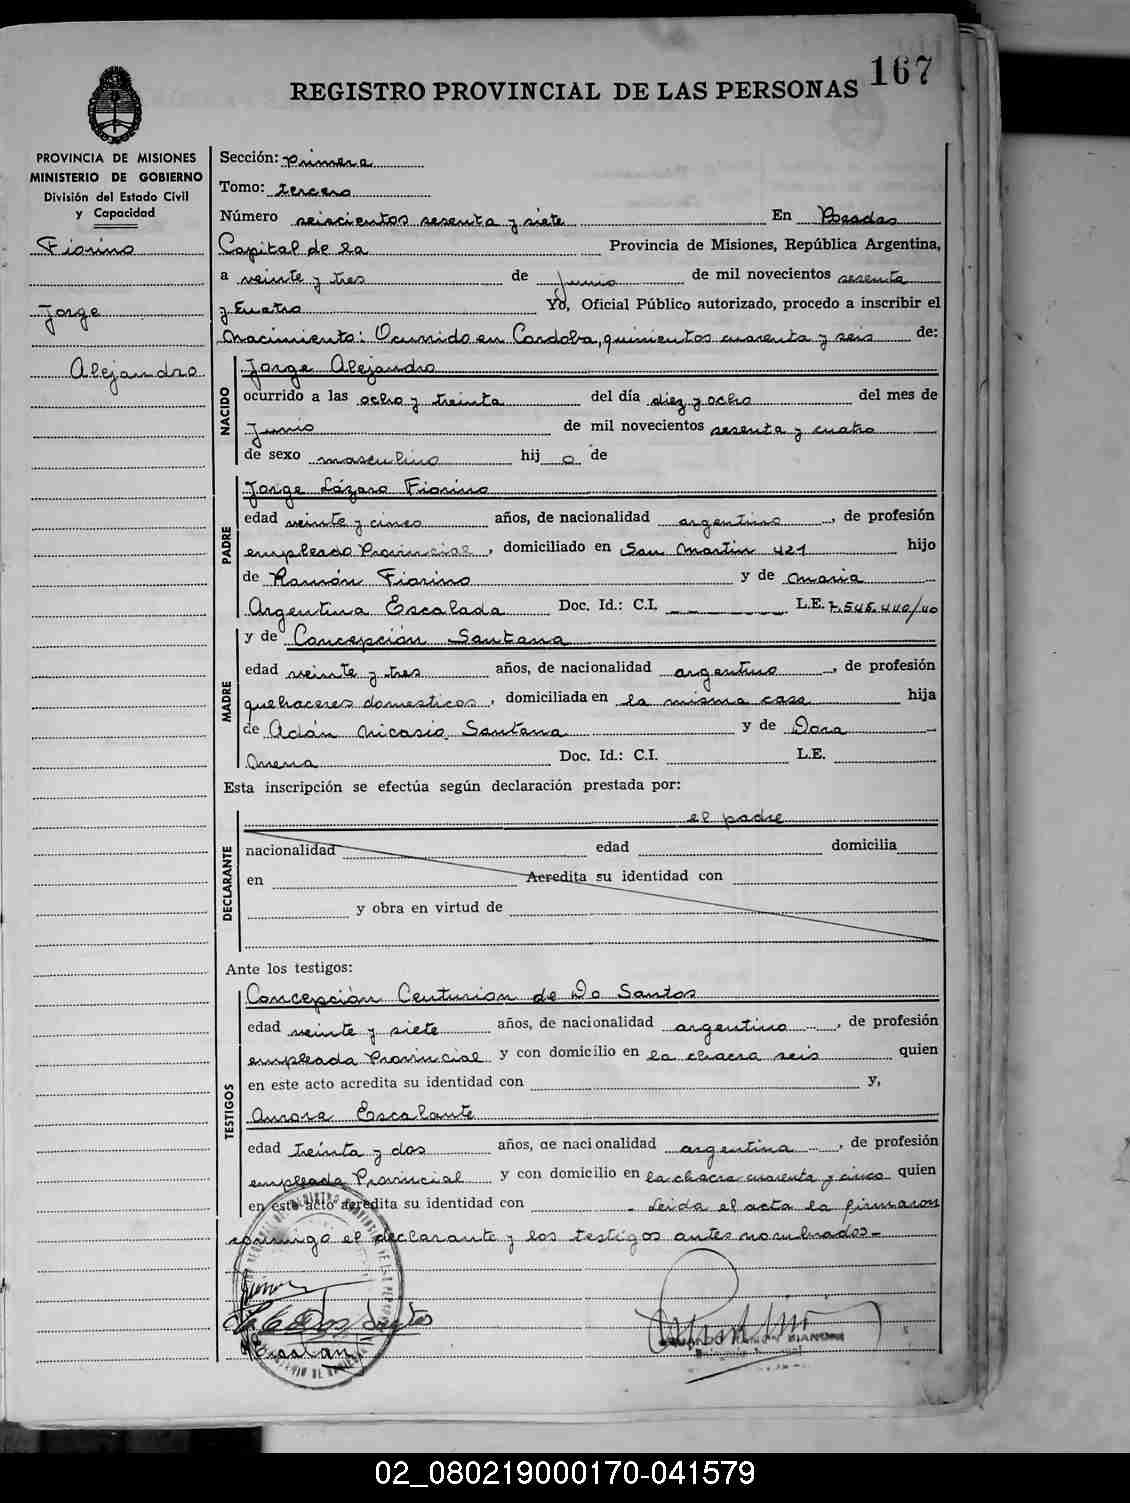 167
REGISTRO PROVINCIAL DE LAS PERSONAS
PROVINCIA DE MISIONES
MINISTERIO DE GOBIERNO
División del Estado Civil
y Capacidad
Fiorino
Jorge
Alejandro
Sección: Primera
Tomo: tercero
Número seiscientos sesenta y siete En Posadas
Capital de la Provincia de Misiones, República Argentina,
a veinte y tres de junio de mil novecientos sesenta
y cuatro Yo, Oficial Público autorizado, procedo a inscribir el
Nacimiento: Ocurrido en Cordoba, quinientos cuarenta y seis de:
NACIDO
Jorge Alejandro
ocurrido a las ocho y treinta del día diez y ocho del mes de
Junio de mil novecientos sesenta y cuatro
de sexo masculino hij o de
PADRE
Jorge Lázaro Fiorino
edad veinte y cinco años, de nacionalidad argentino, de profesión
empleado Provincial, domiciliado en San Martin 421 hijo
de Ramón Fiorino y de Maria
Argentina Escalada Doc. Id.: C.I. L.E. 7.545.440/40
MADRE
y de Concepción Santana
edad veinte y tres años, de nacionalidad argentino, de profesión
quehaceres domesticos, domiciliada en la misma casa hija
de Adán Nicasio Santana y de Dora
Doc. Id.: C.I. L.E.
Esta inscripción se efectúa según declaración prestada por:
el padre
DECLARANTE
nacionalidad edad domicilia
en Acredita su identidad con
y obra en virtud de
Ante los testigos:
TESTIGOS
Concepción Centurion de Do Santos
edad veinte y siete años, de nacionalidad argentino, de profesión
empleada Provincial y con domicilio en la chacra seis quien
en este acto acredita su identidad con y,
Aurora Escalante
edad treinta y dos años, de nacionalidad argentina, de profesión
empleada Provincial y con domicilio en la chacra cuarenta y cinco quien
en este acto acredita su identidad con - Leida el acta la firmaron
conmigo el declarante y los testigos antes nombrados-
02_080219000170-041579